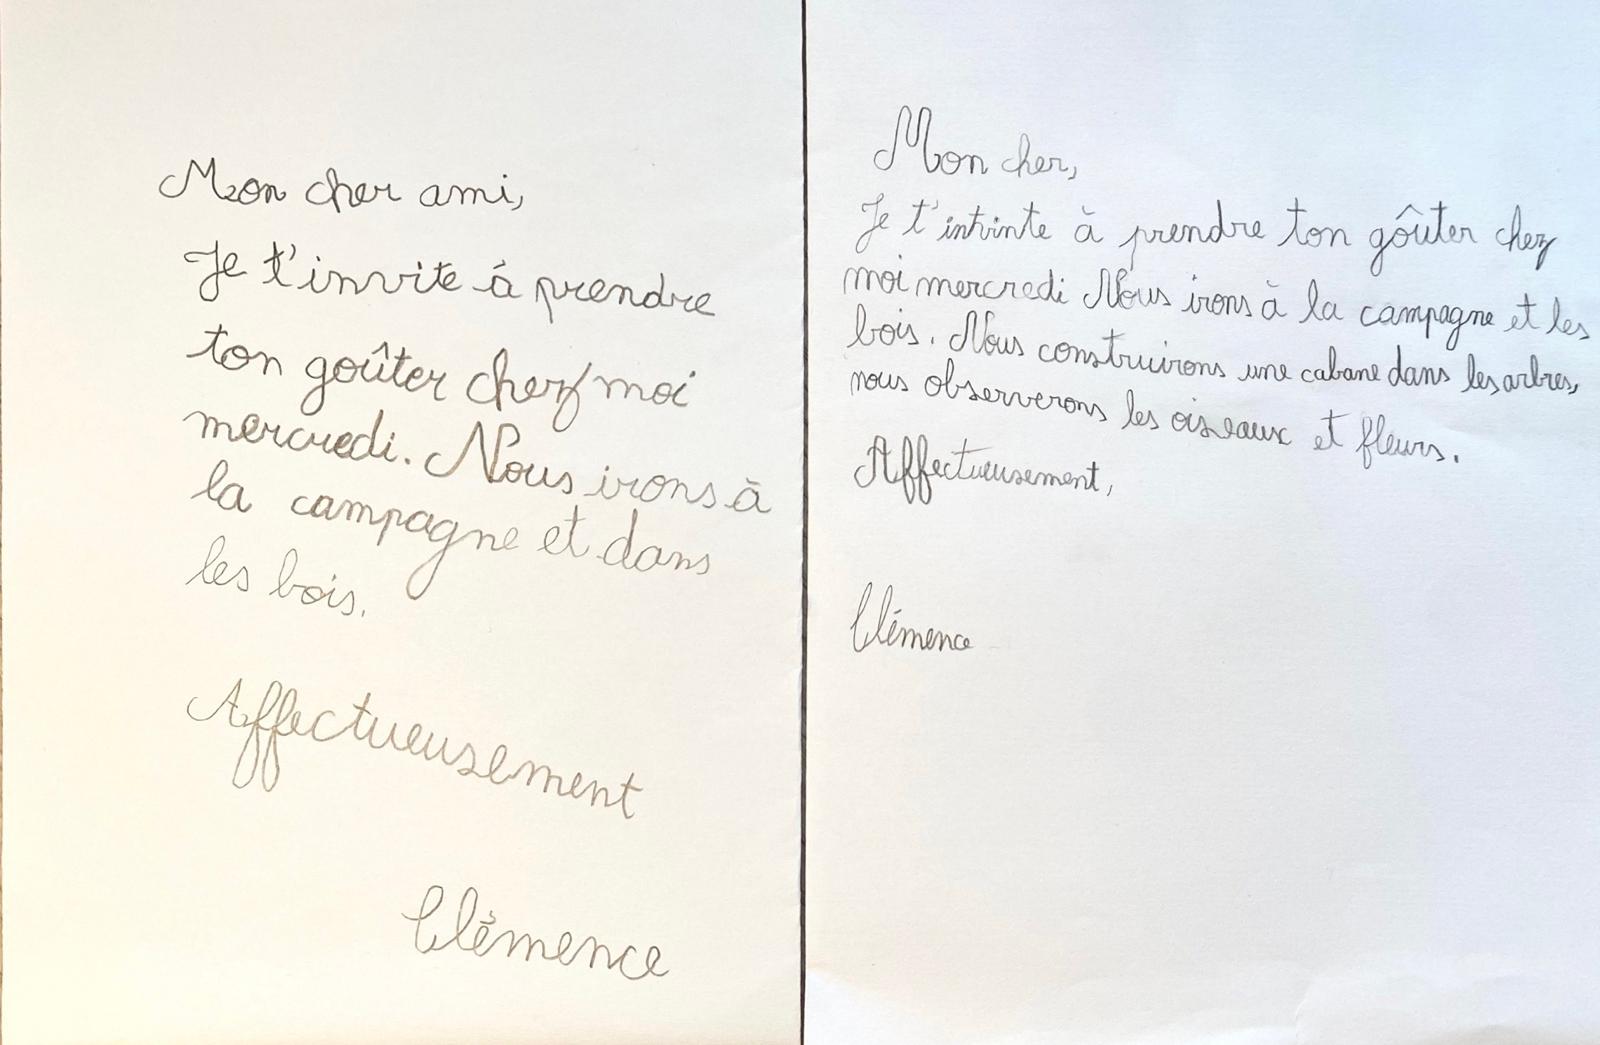 Mon cher ami,
Je t'invite à prendre
ton goûter chez moi
mercredi. Nous irons à
la campagne et dans
les bois.
Affectueusement
Clémence
Mon cher,
Je t'intvinte à prendre ton goûter chez
moi mercredi Nous irons à la campagne et les
bois. Nous construirons une cabane dans les arbres,
nous observerons les oiseaux et fleurs.
Affectueusement,
Clémence